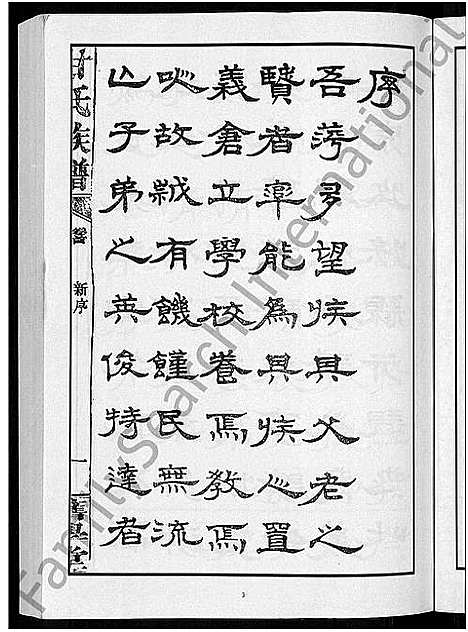 序
吾萍多望族其父老之
賢者率能為其族人置
義倉立學校養焉教焉
吣故
有饑饉民無流
亾子弟之英俊特達者
氏族譜
新序
一
FamilySearch International